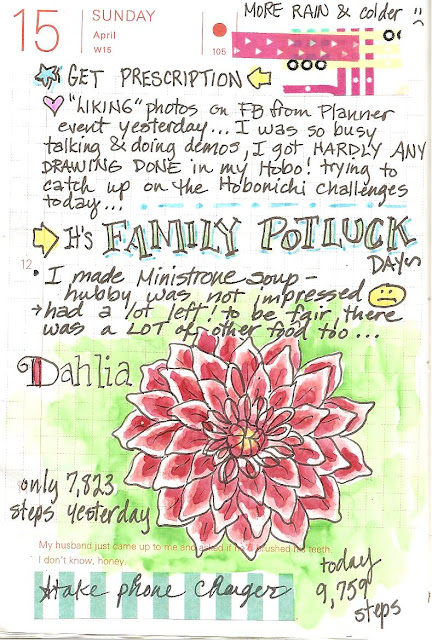 MORE RAIN & colder
15 SUNDAY
April
W15
105
GET PRESCRIPTION
"LIKING" photos on FB from Planner
event yesterday... I was so busy
talking & doing demos, I got HARDLY ANY
DRAWING DONE in my Hobo! trying to
catch up on the Hobonichi challenges
today...
It's FAMILY POTLUCK
DAYS
12
• I made Ministrone soup-
hubby was not impressed
→ had a lot left! to be fair, there
was a LOT of other food too...
Dahlia
only 7,823
steps yesterday
My husband just came up to me and asked if he'd brushed his teeth.
I don't know, honey.
take phone charger
today
9,759
steps